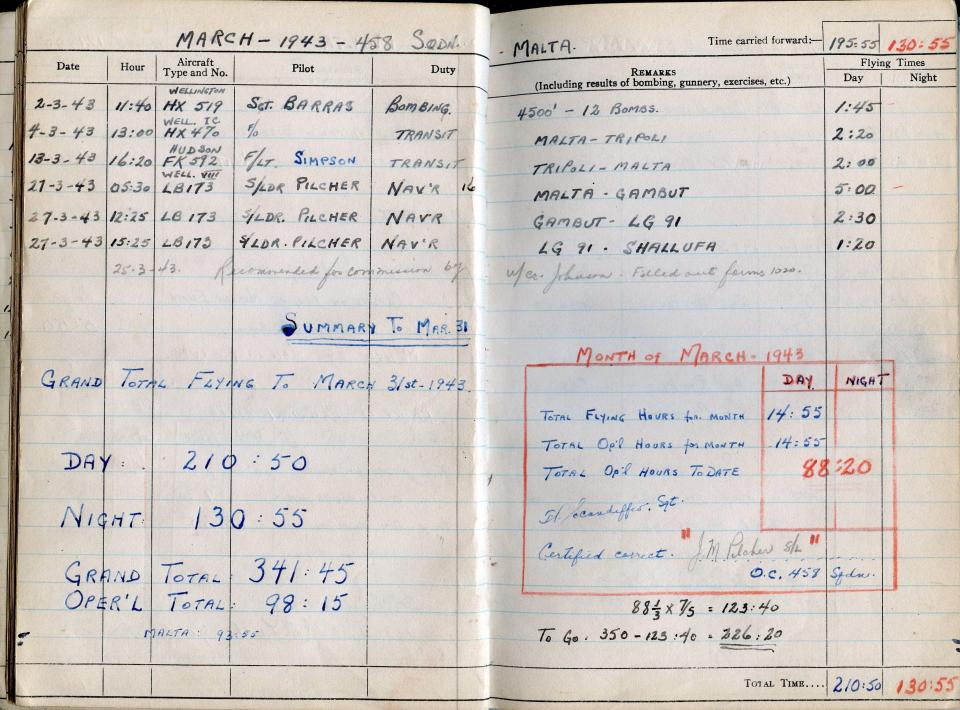 MARCH - 1943 - 458 SQDN. - MALTA.
Time carried forward:— 195:55 130:55
Date Hour Aircraft Type and No. Pilot Duty REMARKS (Including results of bombing, gunnery, exercises, etc.) Flying Times Day Night
2-3-43 11:40 WELLINGTON HX 519 SGT. BARRAS BOMBING. 4500' - 12 BOMBS. 1:45
4-3-43 13:00 WELL. IC HX 470 % TRANSIT MALTA-TRIPOLI 2:20
13-3-43 16:20 HUDSON FK 592 F/LT. SIMPSON TRANSIT TRIPOLI-MALTA 2:00
27-3-43 05:30 WELL. VIII LB173 S/LDR PILCHER NAV'R 16 MALTA - GAMBUT 5:00
27-3-43 12:25 LB173 S/LDR. PILCHER NAV'R GAMBUT - LG 91 2:30
27-3-43 15:25 LB173 S/LDR. PILCHER NAV'R LG 91 - SHALLUFA 1:20
25-3-43. Recommended for commission by W/Cr. Johnson. Filled out forms 1020.
SUMMARY TO MAR. 31
GRAND TOTAL FLYING TO MARCH 31st-1943.
DAY: 210:50
NIGHT: 130:55
GRAND TOTAL: 341:45
OPER'L TOTAL: 98:15
MALTA: 93:55
MONTH of MARCH - 1943
DAY NIGHT
TOTAL FLYING HOURS for MONTH 14:55
TOTAL OP'L HOURS for MONTH 14:55
TOTAL OP'L HOURS TO DATE 88:20
Sgt.
Certified correct. "J.M Pilcher S/L"
O.C. 458 Sqdn.
88⅓ x 7/5 = 123:40
TO GO. 350 - 123:40 = 226:20
TOTAL TIME.... 210:50 130:55